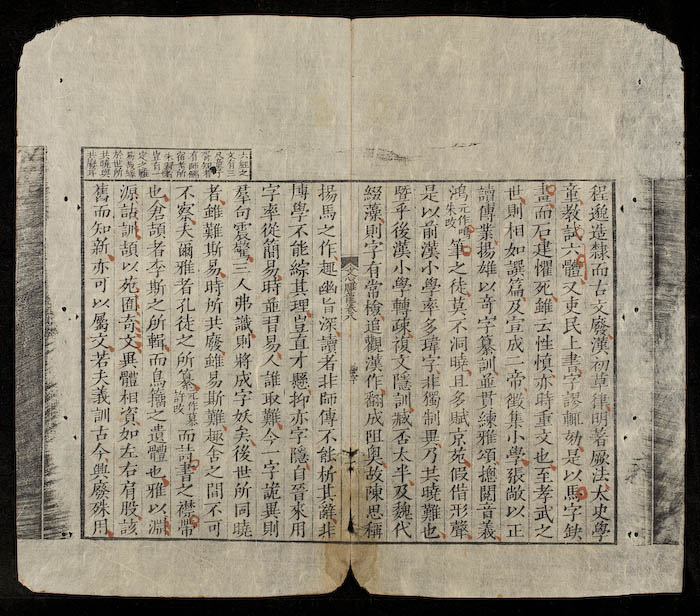 六經之
文有三
尺童子
胥知者
有師儒
宿老所
未習者
豈有一
定之難
易哉緣
於世所
共曉與
共廢耳
程邈造隸而古文廢漢初草律明著厥法太史學
童教試六體又吏民上書字謬輒劾是以馬字缺
畫而石建懼死雖云性慎亦時重文也至孝武之
世則相如譔篇及宣成二帝徵集小學張敞以正
讀傳業揚雄以奇字纂訓並貫練雅頌總閱音義
鴻元作鳴朱改筆之徒莫不洞曉且多賦京苑假借形聲
是以前漢小學率多瑋字非獨制異乃共曉難也
暨乎後漢小學轉疎複文隱訓臧否太半及魏代
綴藻則字有常檢追觀漢作翻成阻奧故陳思稱
文心雕龍卷八
揚馬之作趣幽旨深讀者非師傳不能析其辭非
博學不能綜其理豈直才懸抑亦字隱自晉來用
字率從簡易時並習易人誰取難今一字詭異則
羣句震驚三人弗識則將成字妖矣後世所同曉
者雖難斯易時所共廢雖易斯難趣舍之間不可
不察夫爾雅者孔徒之所纂元作慕許改而詩書之襟帶
也倉頡者李斯之所輯而鳥籀之遺體也雅以淵
源詁訓頡以苑囿奇文異體相資如左右肩股該
舊而知新亦可以屬文若夫義訓古今興廢殊用